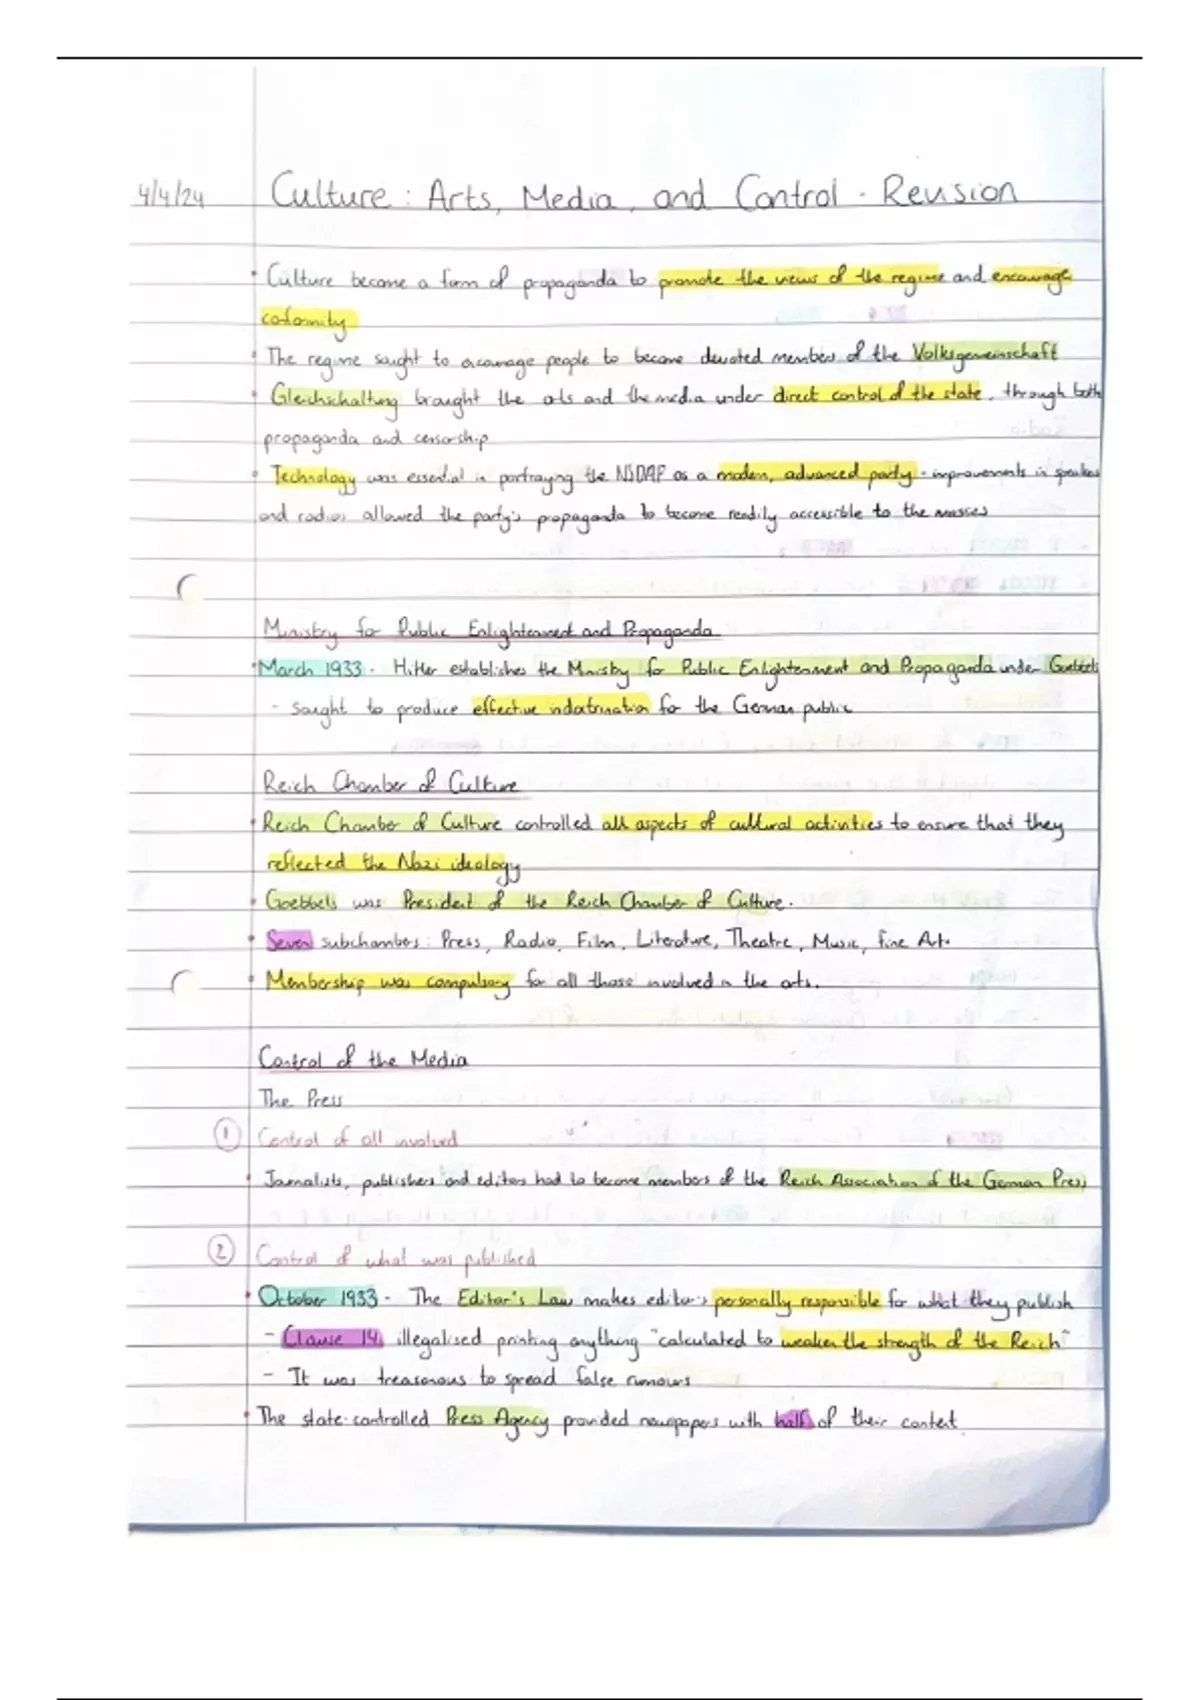 4/4/24 Culture: Arts, Media, and Control - Revision
• Culture became a form of propaganda to promote the views of the regime and encourage
conformity
• The regime sought to encourage people to become devoted members of the Volksgemeinschaft
• Gleichschaltung brought the arts and the media under direct control of the state, through both
propaganda and censorship
• Technology was essential in portraying the NSDAP as a modern, advanced party - improvements in speakers
and radios allowed the party's propaganda to become readily accessible to the masses
Ministry for Public Enlightenment and Propaganda
• March 1933 - Hitler establishes the Ministry for Public Enlightenment and Propaganda under Goebbels
- sought to produce effective indoctrination for the German public
Reich Chamber of Culture
• Reich Chamber of Culture controlled all aspects of cultural activities to ensure that they
reflected the Nazi ideology
• Goebbels was President of the Reich Chamber of Culture.
• Seven subchambers: Press, Radio, Film, Literature, Theatre, Music, Fine Art.
• Membership was compulsory for all those involved in the arts.
Control of the Media
The Press
① Control of all involved
• Journalists, publishers and editors had to become members of the Reich Association of the German Press
② Control of what was published
• October 1933 - The Editor's Law makes editors personally responsible for what they publish
- Clause 14 illegalised printing anything "calculated to weaken the strength of the Reich"
- It was treasonous to spread false rumours
• The state-controlled Press Agency provided newspapers with half of their content